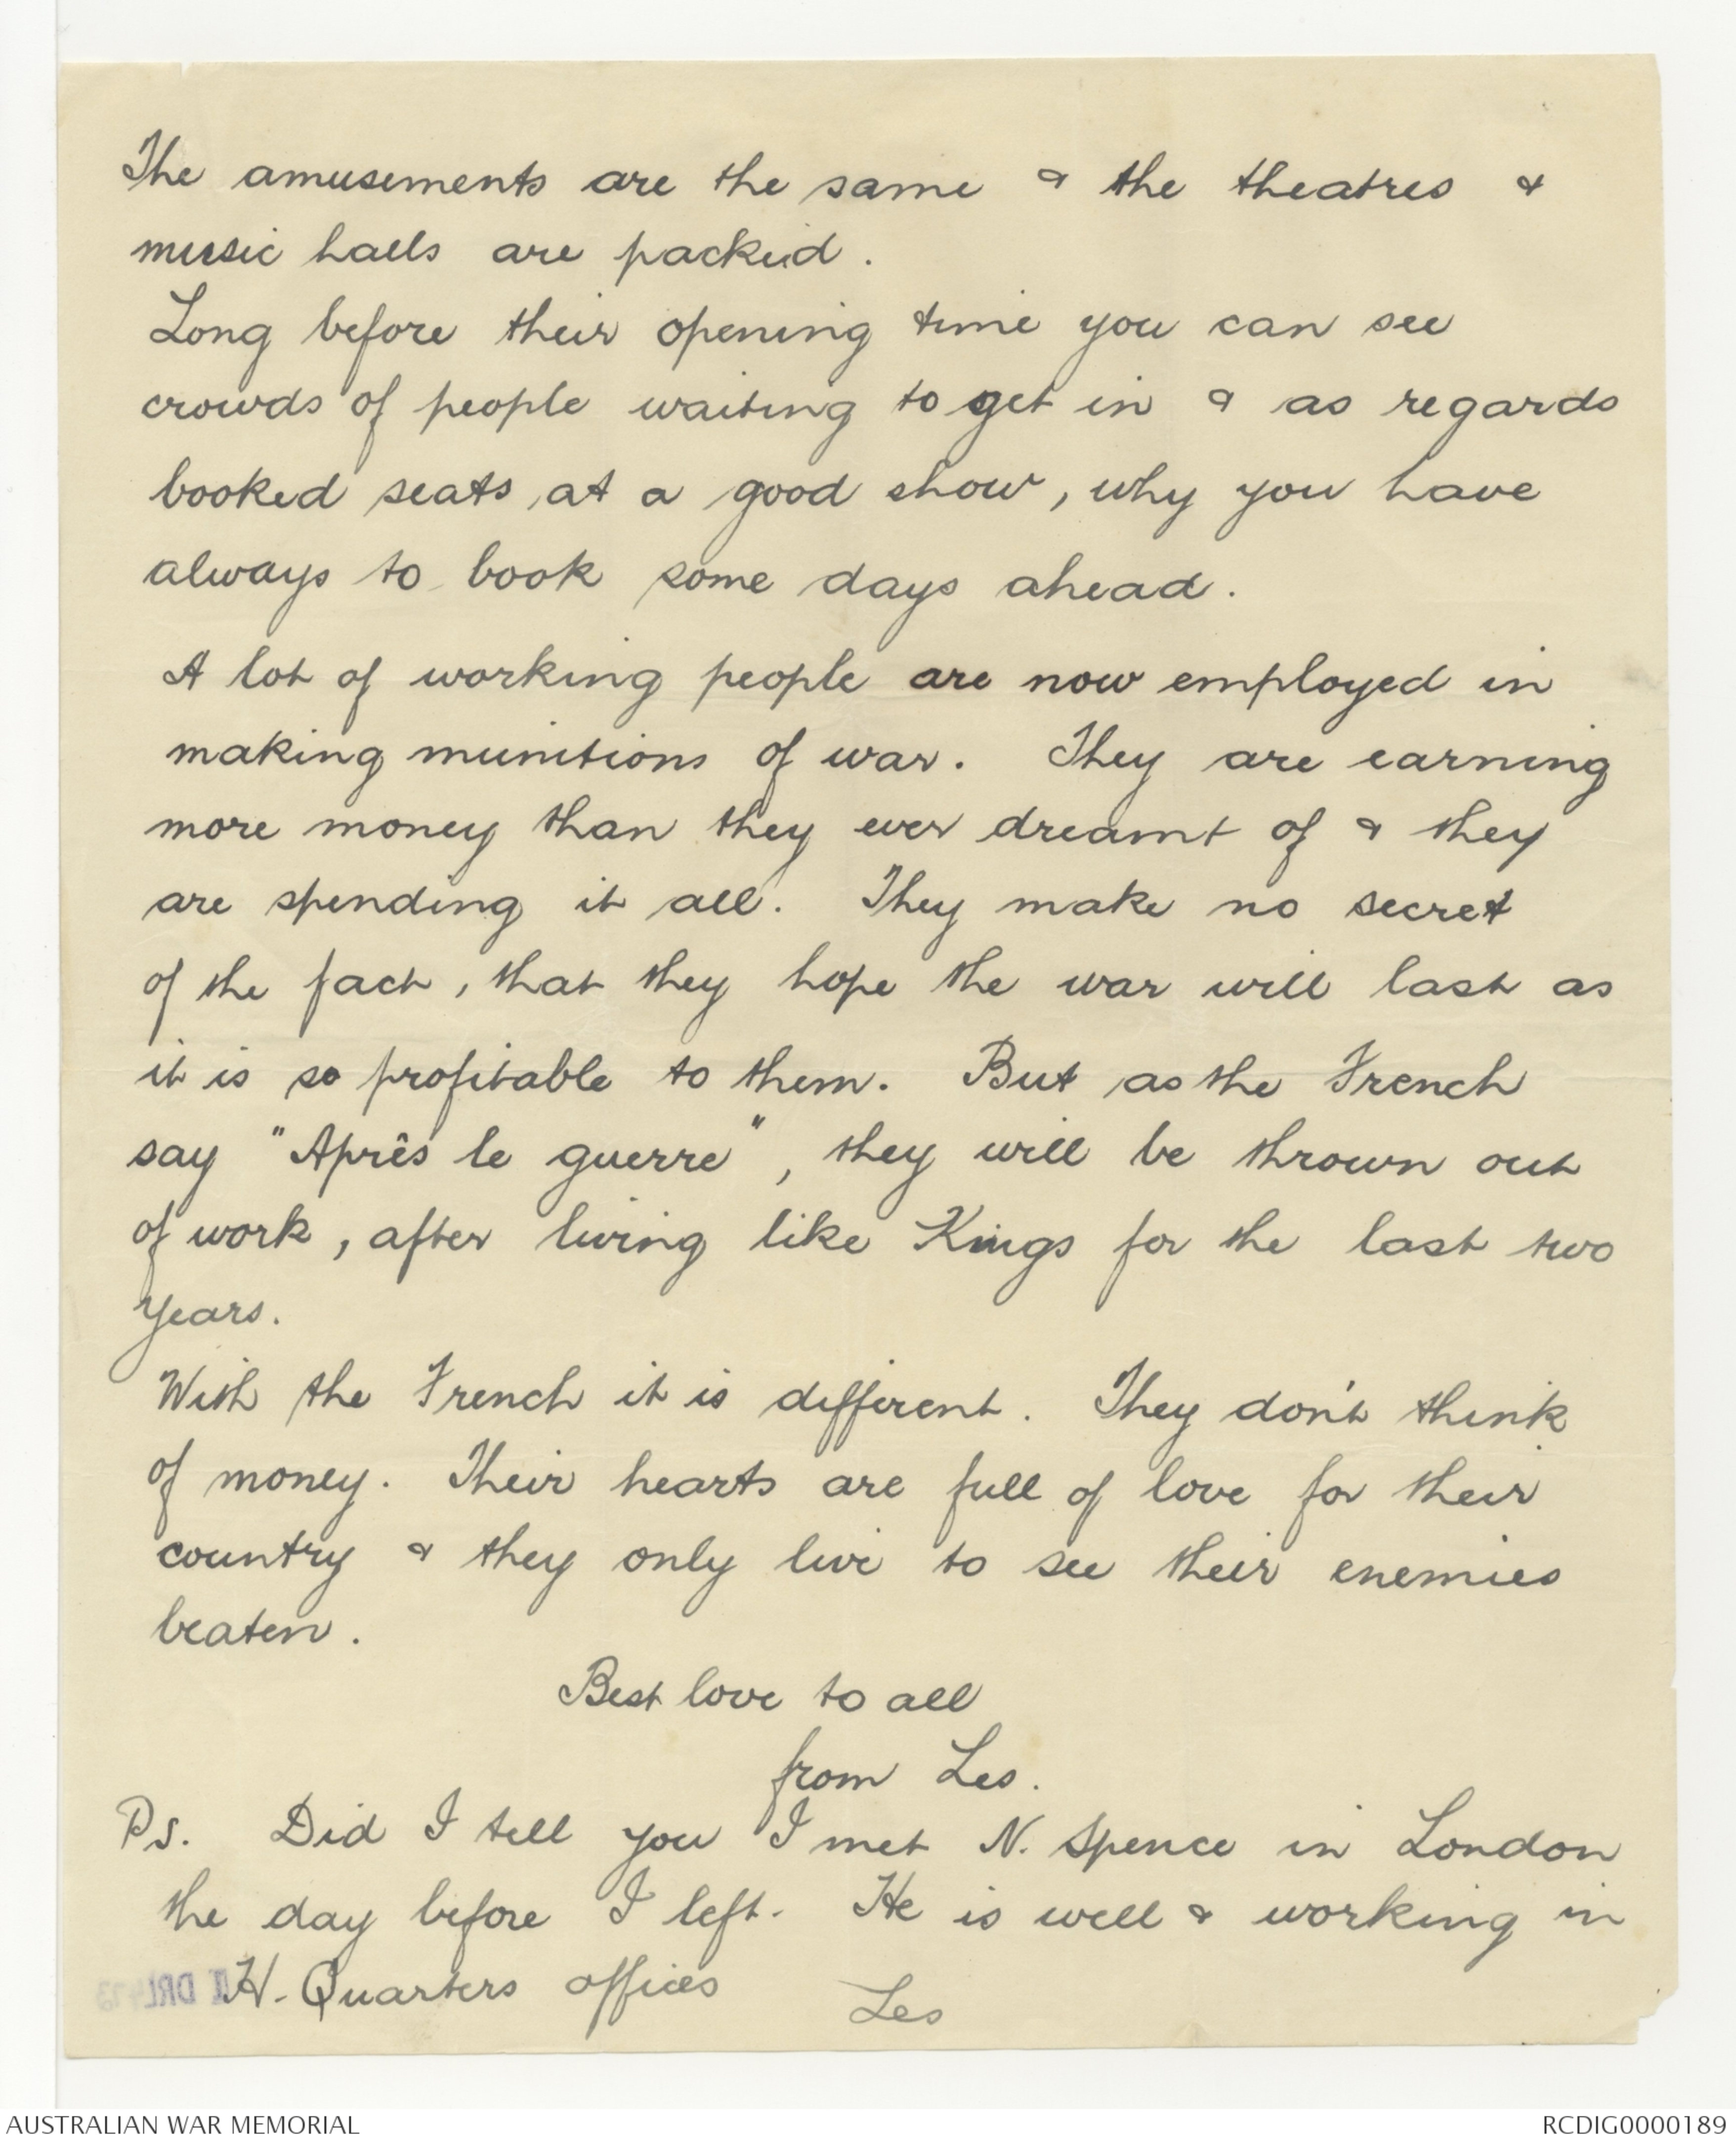 The amusements are the same & the theatres &
music halls are packed.
Long before their opening time you can see
crowds of people waiting to get in & as regards
booked seats at a good show, why you have
always to book some days ahead.
A lot of working people are now employed in
making munitions of war. They are earning
more money than they ever dreamt of & they
are spending it all. They make no secret
of the fact, that they hope the war will last as
it is so profitable to them. But as the French
say "Après le guerre", they will be thrown out
of work, after living like Kings for the last two
years.
With the French it is different. They don't think
of money. Their hearts are full of love for their
country & they only live to see their enemies
beaten.
Best love to all
from Les.
Ps. Did I tell you I met N. Spence in London
the day before I left. He is well & working in
H. Quarters offices
Les
AUSTRALIAN WAR MEMORIAL
RCDIG0000189